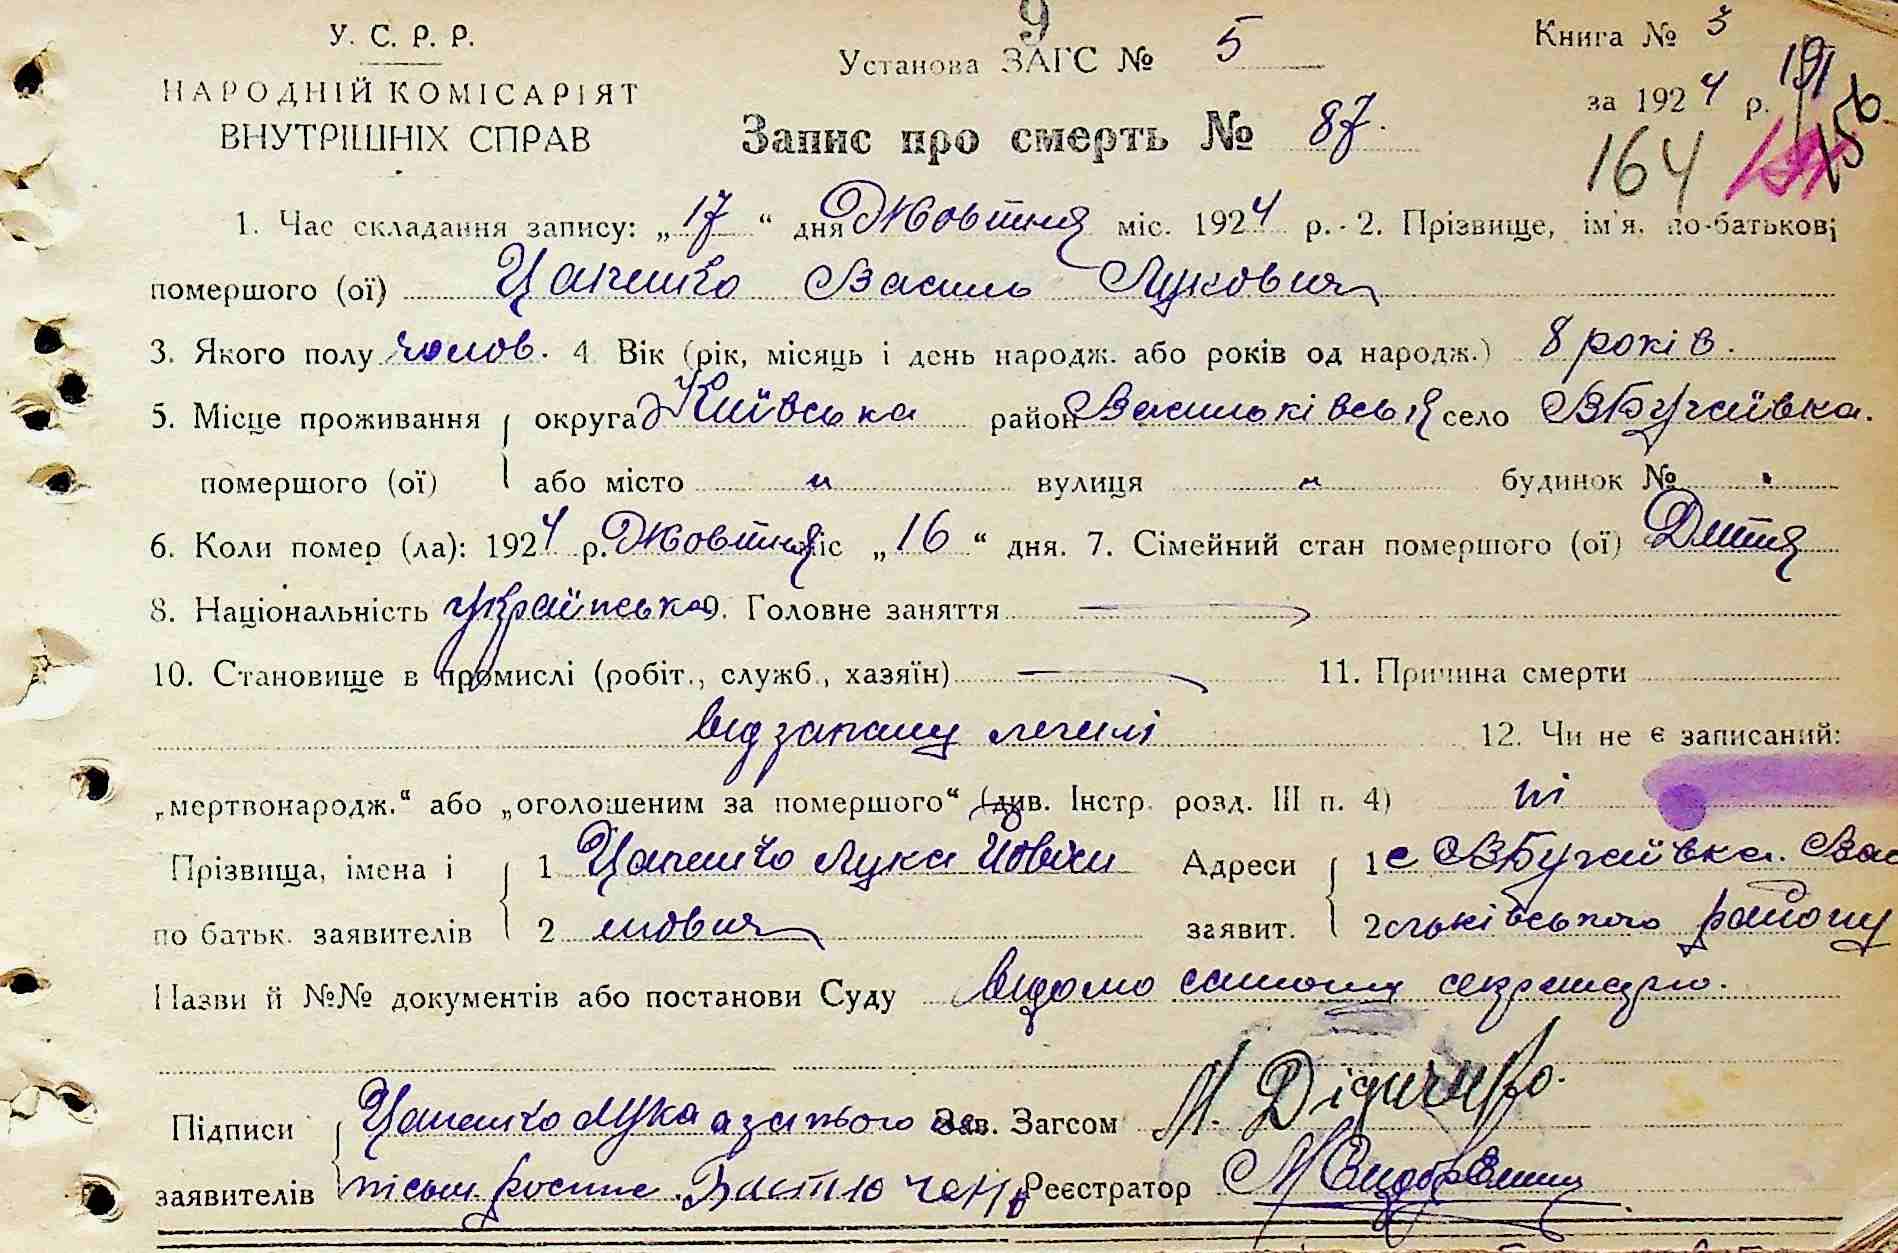 9
У. С. Р. Р.
Установа ЗАГС № 5
Книга № 3
НАРОДНІЙ КОМІСАРІЯТ
за 1924 р.
191
156
ВНУТРІШНІХ СПРАВ
Запис про смерть № 87.
164
1. Час складання запису: „17“ дня Жовтня міс. 1924 р. - 2. Прізвище, ім'я, по-батькові
помершого (ої) Цапенко Василь Лукович
3. Якого полу чолов. 4 Вік (рік, місяць і день народж. або років од народж.) 8 років.
5. Місце проживання округа Київська район Васильківськ село ВБугаївка.
помершого (ої) або місто " вулиця " будинок № "
6. Коли помер (ла): 1924 р. Жовтня міс „16“ дня. 7. Сімейний стан помершого (ої) Дитя
8. Національність українська 9. Головне заняття
10. Становище в промислі (робіт., служб., хазяїн) 11. Причина смерти
від запалу легені 12. Чи не є записаний:
„мертвонародж.“ або „оголошеним за помершого“ (див. Інстр. розд. III п. 4) ні
Прізвища, імена і 1 Цапенко Лука Адреси 1 с ВБугаївка. Вас
по батьк. заявителів 2 заявит. 2 ськівського району
Назви й №№ документів або постанови Суду відомо самому секретарю.
Підписи Цапенко Лука а за нього Зав. Загсом М. Дідиченко.
заявителів росп. Реєстратор